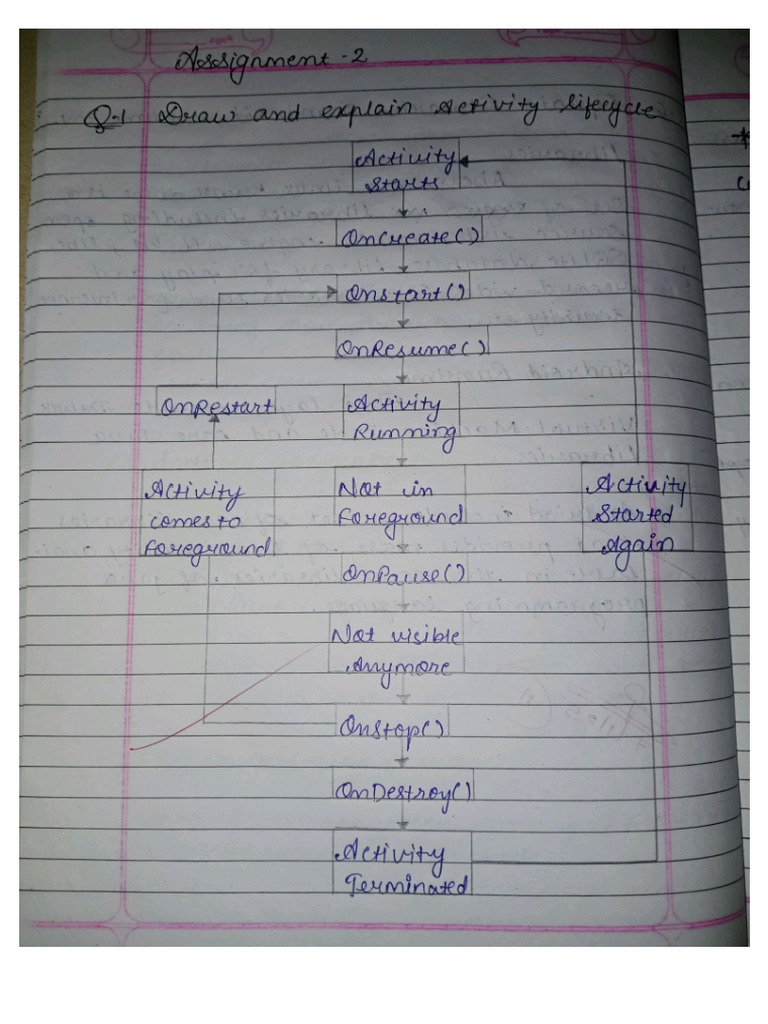 Asssignment-2
Q-1 Draw and explain Activity lifecycle
Activity
Starts
OnCreate()
Onstart()
OnResume()
OnRestart
Activity
Running
Activity
comes to
foreground
Not in
foreground
Activity
Started
Again
OnPause()
Not visible
Anymore
OnStop()
OnDestroy()
Activity
Terminated